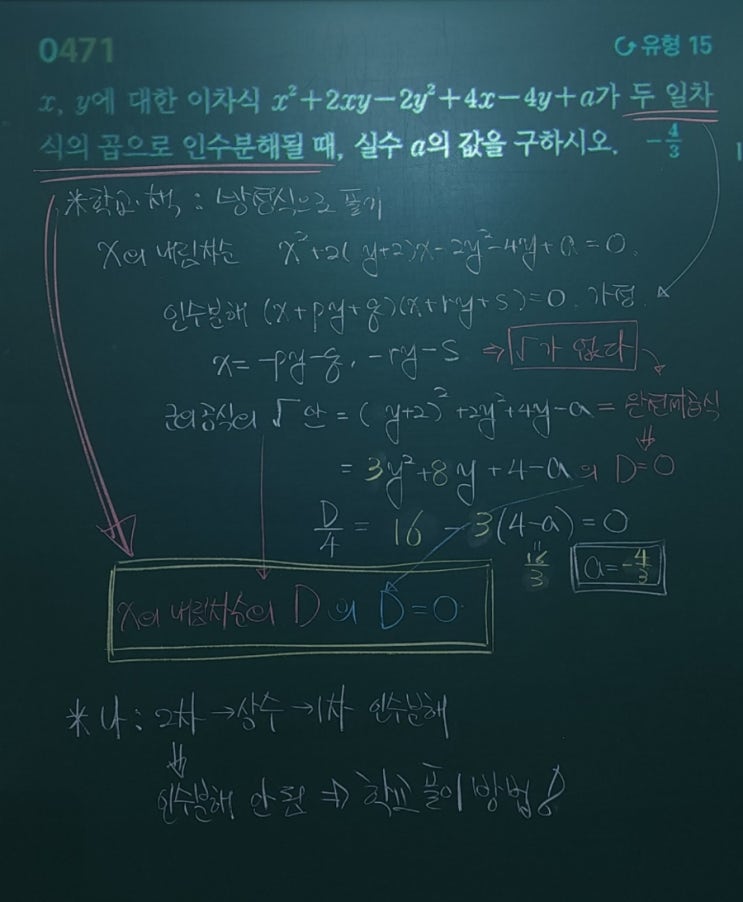 0471
유형 15
x, y에 대한 이차식 x²+2xy-2y²+4x-4y+a가 두 일차
식의 곱으로 인수분해될 때, 실수 a의 값을 구하시오. -4/3
*학교·책 : 방정식으로 풀기
x의 내림차순 x²+2(y+2)x-2y²-4y+a=0.
인수분해 (x+py+q)(x+ry+s)=0. 가정.
x=-py-q, -ry-s ⇒ √가 없다
근의공식의 √안 = (y+2)²+2y²+4y-a = 완전제곱식
= 3y²+8y+4-a의 D=0
D/4 = 16-3(4-a)=0
16/3 a=-4/3
x의 내림차순의 D의 D=0.
*나 : 2차→상수→1차 인수분해
⇓
인수분해 안됨 ⇒ 학교 풀이 방법!